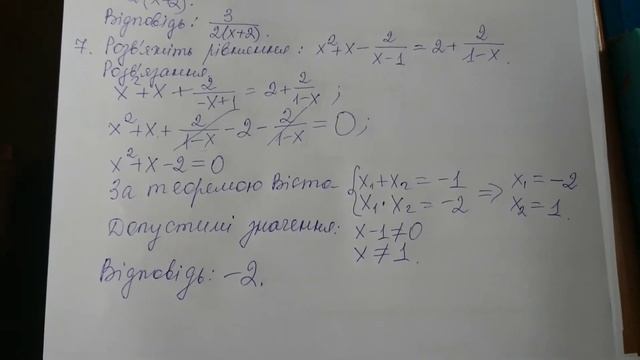 Відповідь: 3/(2(x+2))
7. Розв'яжіть рівняння: x²+x-2/(x-1)=2+2/(1-x).
Розв'язання.
x²+x+2/(-x+1)=2+2/(1-x);
x²+x+2/(1-x)-2-2/(1-x)=0;
x²+x-2=0
За теоремою Вієта {x₁+x₂=-1 => x₁=-2
x₁·x₂=-2 x₂=1.
Допустимі значення: x-1≠0
x≠1.
Відповідь: -2.